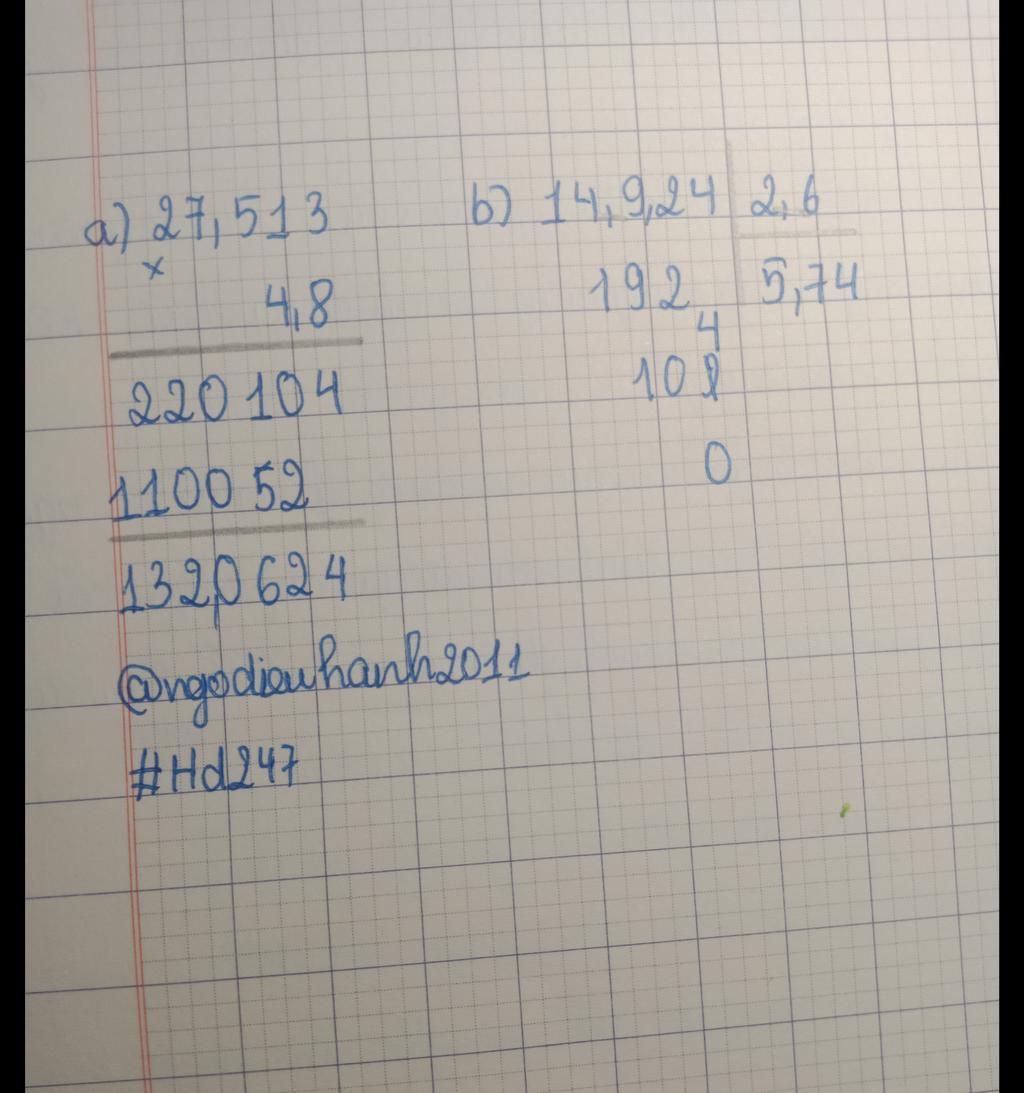 a) 27,513
x
4,8
220104
110052
132,0624
b) 14,9,24 2,6
192 5,74
4
10
0
@ngodieuhanh2011
#Hd247